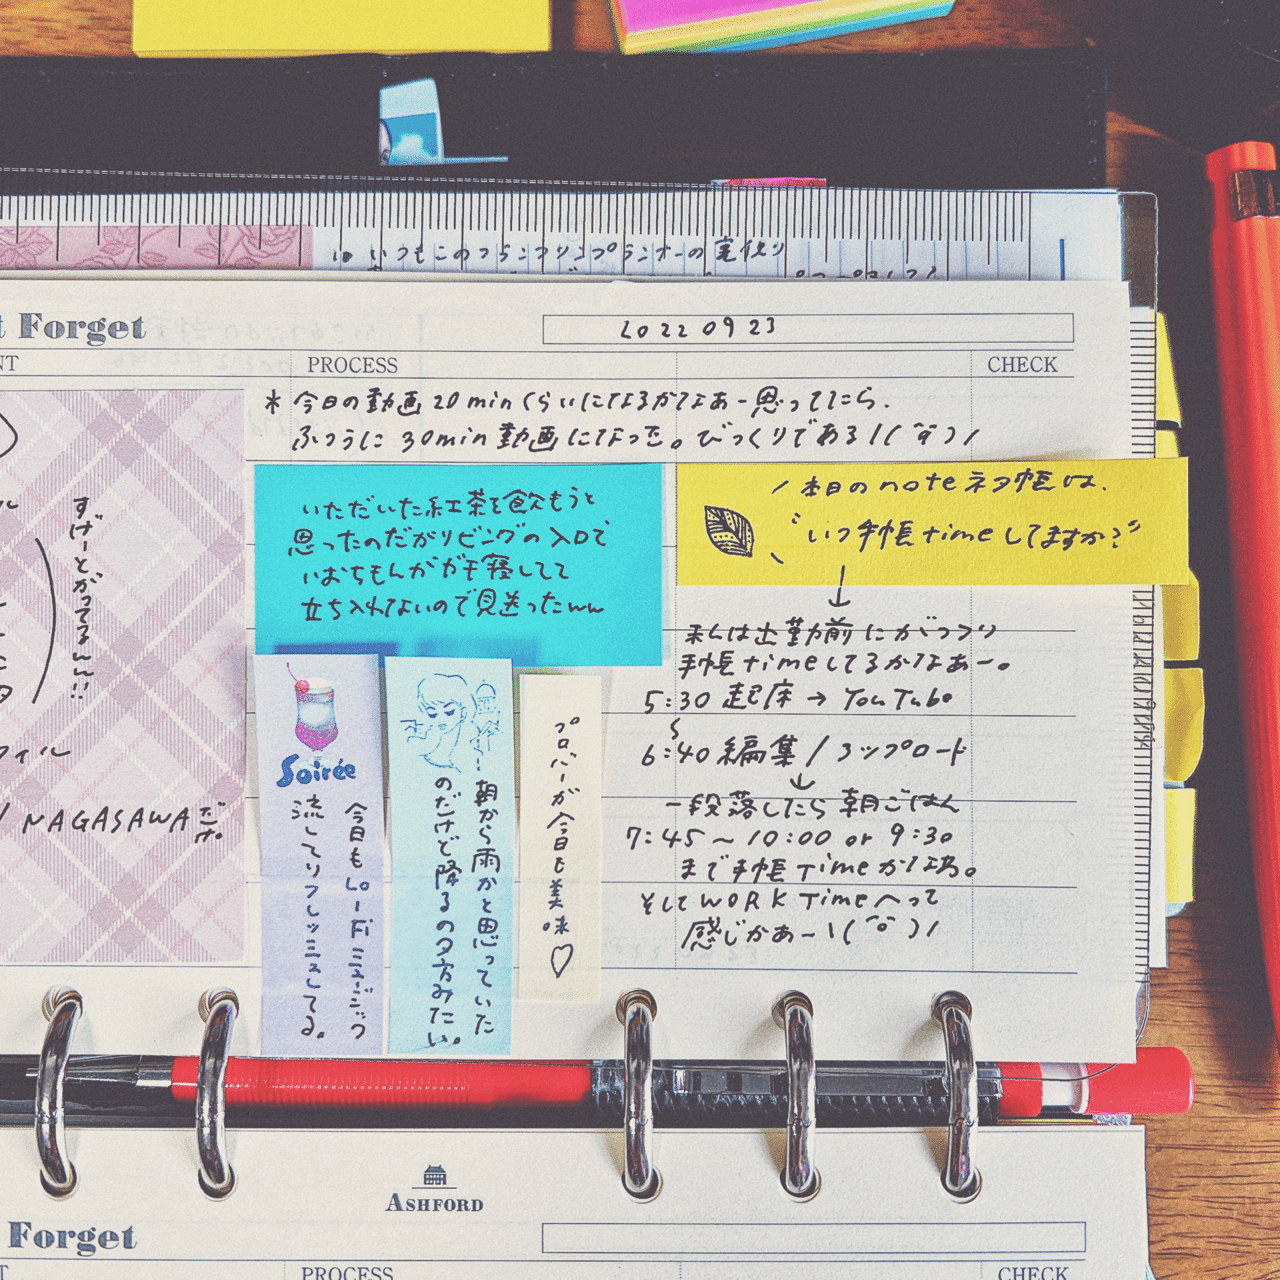 いつもこのフランクリンプランナーの
t Forget
2022 09 23
NT
PROCESS
CHECK
* 今日の動画 20minくらいになるかなぁー思ってたら.
ふつうに 30min動画になった。びっくりである!
すげーとがってるん!!
NAGASAWA
いただいた紅茶を飲もうと
思ったのだがリビングの入口で
いおちもんががき寝してて
立ち入れないので見送ったww
/本日のnoteネタ帳は、
"いつ手帳timeしてますか?"
↓
私は出勤前にがっつり
手帳timeしてるかなぁー。
5:30 起床 → YouTube
6:40 編集 / アップロード
↓
一段落したら朝ごはん
7:45 ~ 10:00 or 9:30
まで手帳Timeかなぁ。
そしてWORK Timeへって
感じかぁー
Soirée
今日もLo-Fiミュージック
流してリフレッシュしてる。
朝から雨かと思っていた
のだけど降るの夕方みたい。
プロパーが今日も美味♡
ASHFORD
Forget
PROCESS
CHECK